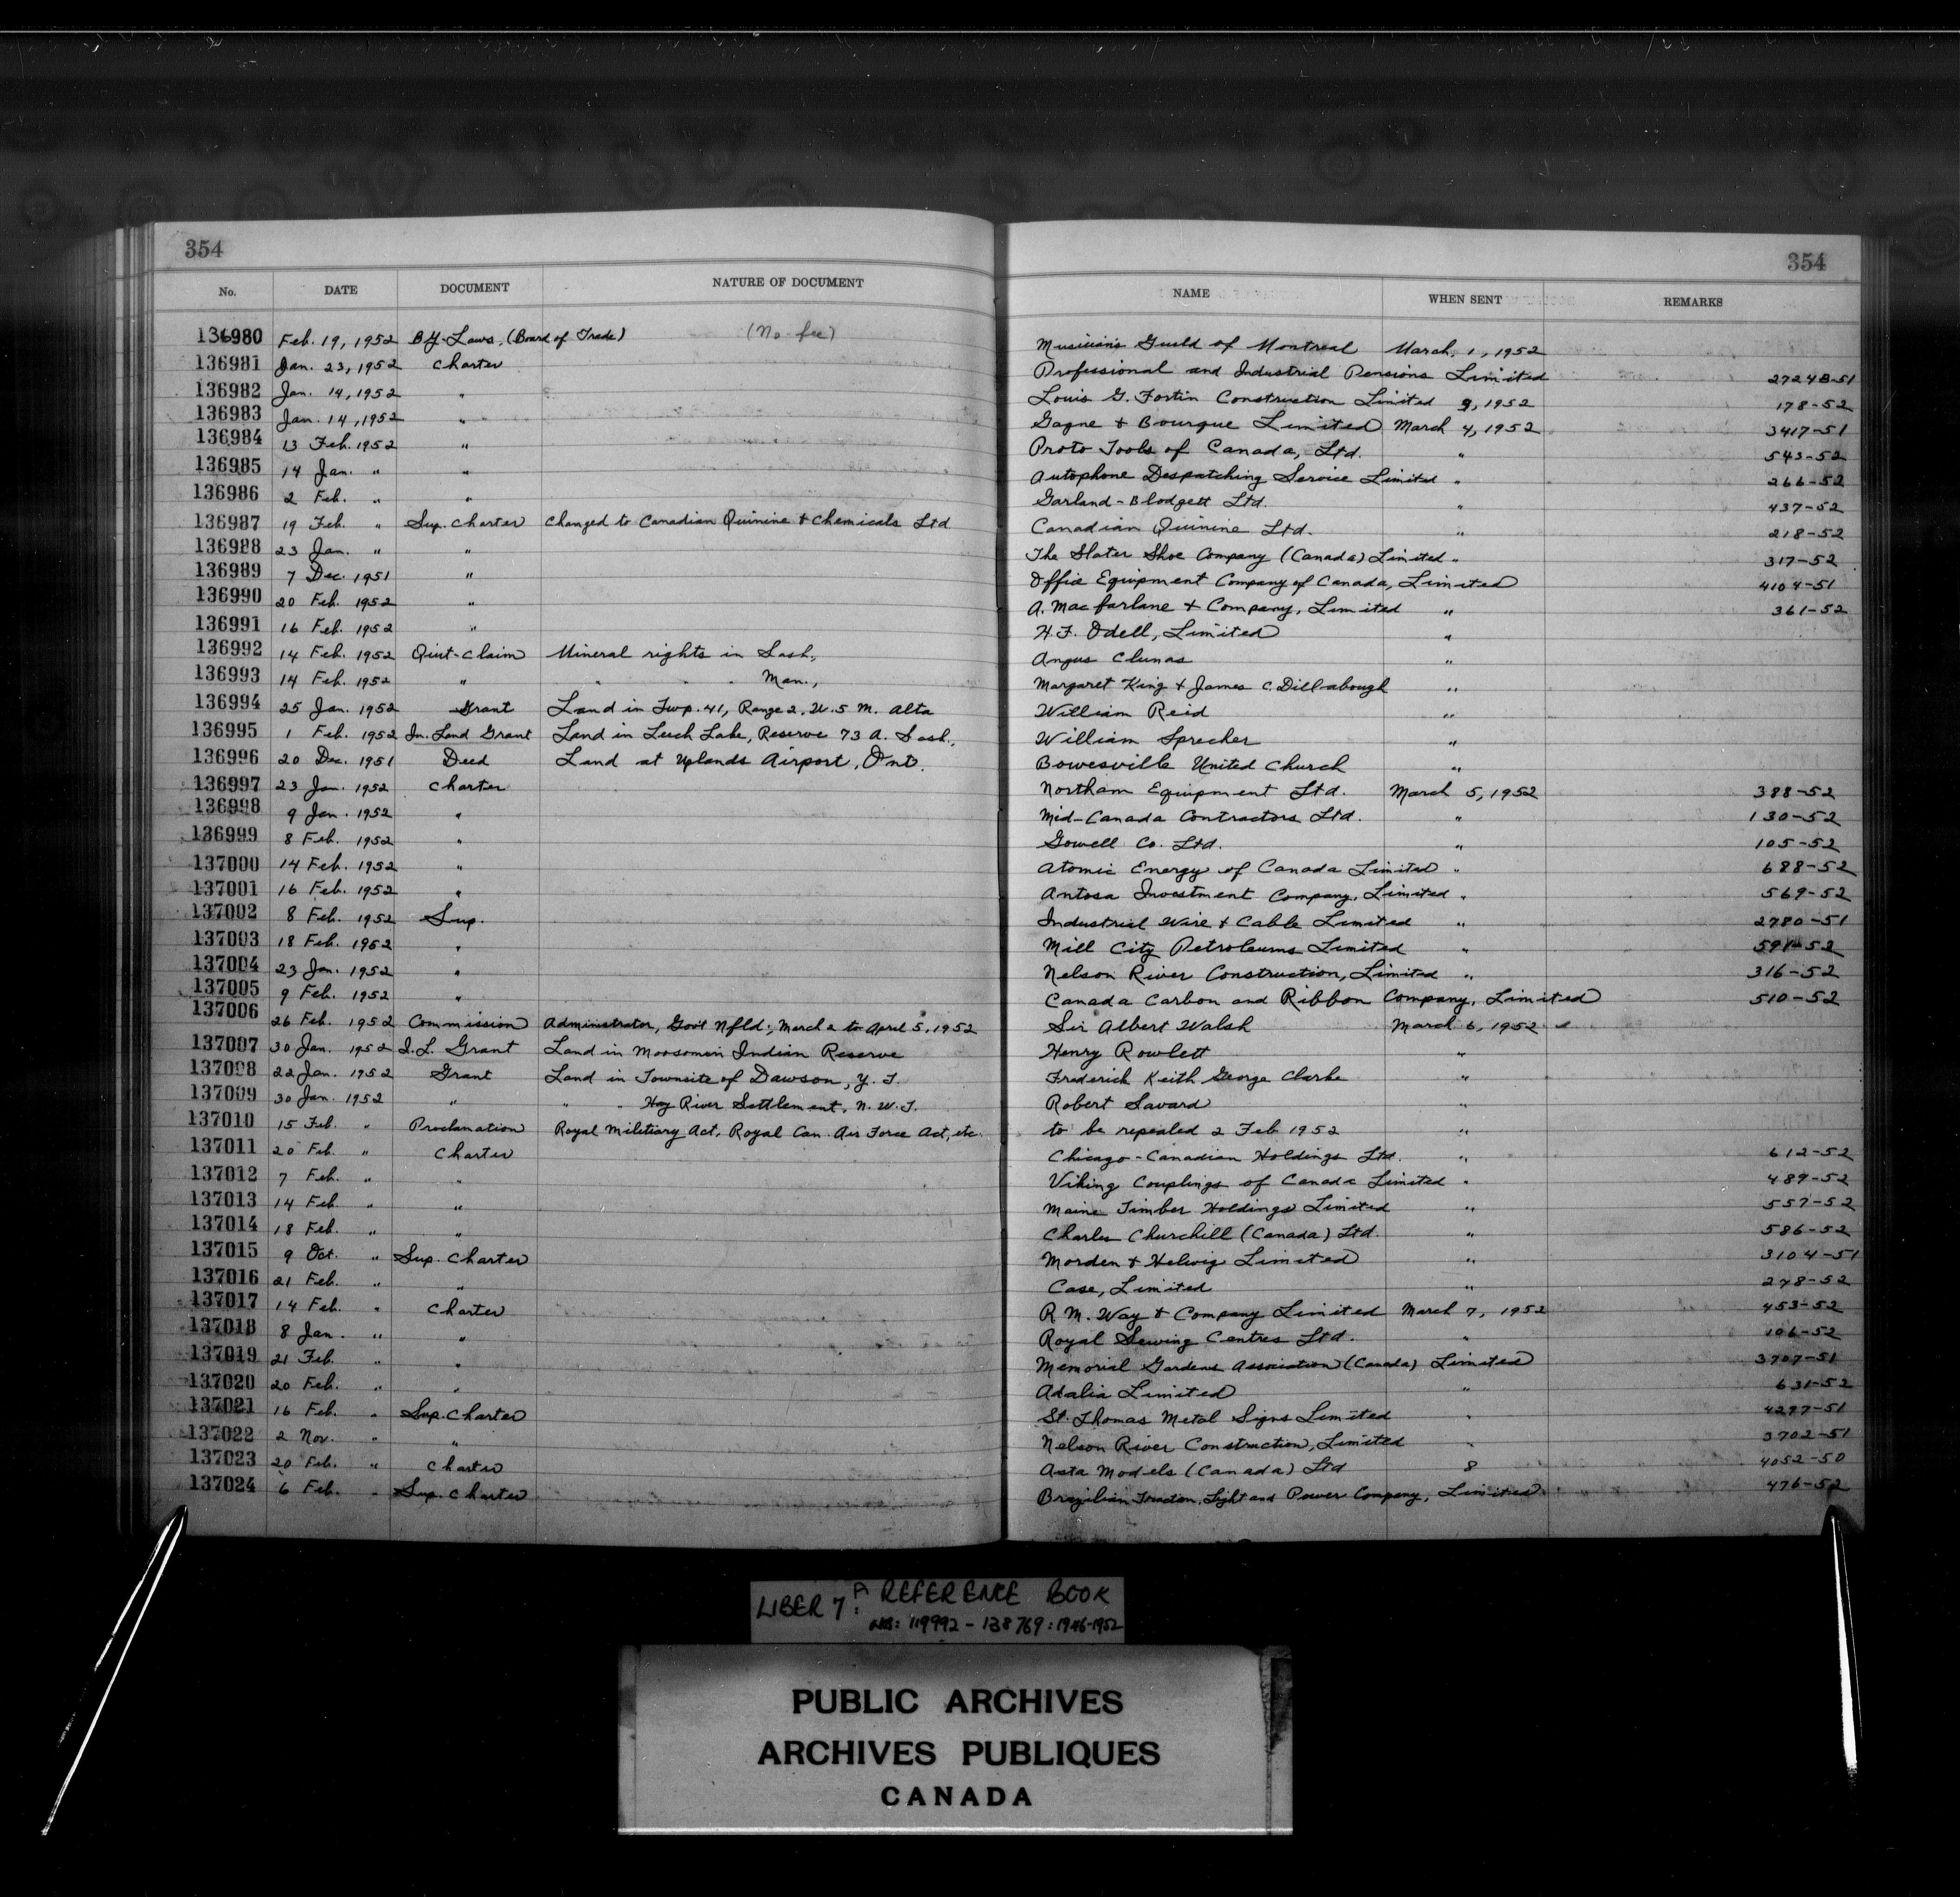 354
354
No. DATE DOCUMENT NATURE OF DOCUMENT NAME WHEN SENT REMARKS
136980 Feb. 19, 1952 By-Laws, (Board of Trade) (No fee) Musicians Guild of Montreal March, 1, 1952
136981 Jan. 23, 1952 Charter Professional and Industrial Pensions Limited 2724B-51
136982 Jan. 14, 1952 " Louis G. Fortin Construction Limited 9, 1952 178-52
136983 Jan. 14, 1952 " Gagne & Bourque Limited March 4, 1952 3417-51
136984 13 Feb. 1952 " Proto Tools of Canada, Ltd. " 543-52
136985 14 Jan. " " Autophone Despatching Service Limited " 266-52
136986 2 Feb. " " Garland-Blodgett Ltd. " 437-52
136987 19 Feb. " Sup. Charter Changed to Canadian Quinine & Chemicals Ltd Canadian Quinine Ltd. " 218-52
136988 23 Jan. " " The Slater Shoe Company (Canada) Limited " 317-52
136989 7 Dec. 1951 " Office Equipment Company of Canada, Limited 4104-51
136990 20 Feb. 1952 " A. Macfarlane & Company, Limited " 361-52
136991 16 Feb. 1952 " H. F. Odell, Limited "
136992 14 Feb. 1952 Quit-Claim Mineral rights in Sask., Angus Clunas "
136993 14 Feb. 1952 " " " " Man., Margaret King & James C. Dillabough "
136994 25 Jan. 1952 Grant Land in Twp. 41, Range 2, W. 5 M. Alta William Reid "
136995 1 Feb. 1952 In. Land Grant Land in Leech Lake, Reserve 73 A. Sask., William Sprecher "
136996 20 Dec. 1951 Deed Land at Uplands Airport, Ont. Bowesville United Church "
136997 23 Jan. 1952 Charter Northam Equipment Ltd. March 5, 1952 388-52
136998 9 Jan. 1952 " Mid-Canada Contractors Ltd. " 130-52
136999 8 Feb. 1952 " Gowell Co. Ltd. " 105-52
137000 14 Feb. 1952 " Atomic Energy of Canada Limited " 688-52
137001 16 Feb. 1952 " Antosa Investment Company, Limited " 569-52
137002 8 Feb. 1952 Sup. Industrial Wire & Cable Limited " 2780-51
137003 18 Feb. 1952 " Mill City Petroleums Limited " 591-52
137004 23 Jan. 1952 " Nelson River Construction, Limited " 316-52
137005 9 Feb. 1952 " Canada Carbon and Ribbon Company, Limited 510-52
137006 26 Feb. 1952 Commission Administrator, Gov't Nfld., March 2 to April 5, 1952 Sir Albert Walsh March 6, 1952
137007 30 Jan. 1952 I. L. Grant Land in Moosomin Indian Reserve Henry Rowlett "
137008 22 Jan. 1952 Grant Land in Townsite of Dawson, Y. T. Frederick Keith George Clarke "
137009 30 Jan. 1952 " " " Hay River Settlement, N. W. T. Robert Savard "
137010 15 Feb. " Proclamation Royal Military Act, Royal Can. Air Force Act, etc. to be repealed 2 Feb 1952 "
137011 20 Feb. " Charter Chicago-Canadian Holdings Ltd. " 612-52
137012 7 Feb. " " Viking Couplings of Canada Limited " 489-52
137013 14 Feb. " " Maine Timber Holdings Limited " 557-52
137014 18 Feb. " " Charles Churchill (Canada) Ltd. " 586-52
137015 9 Oct. " Sup. Charter Morden & Helwig Limited " 3104-51
137016 21 Feb. " " Case, Limited " 248-52
137017 14 Feb. " Charter R. M. Way & Company Limited March 7, 1952 453-52
137018 8 Jan. " " Royal Sewing Centres Ltd. " 106-52
137019 21 Feb. " " Memorial Gardens Association (Canada) Limited 3707-51
137020 20 Feb. " " Adalia Limited " 631-52
137021 16 Feb. " Sup. Charter St. Thomas Metal Signs Limited " 4297-51
137022 2 Nov. " " Nelson River Construction, Limited " 3702-51
137023 20 Feb. " Charter Asta Models (Canada) Ltd 8 4052-50
137024 6 Feb. " Sup. Charter Brazilian Traction, Light and Power Company, Limited 476-52
LIBER 7A: REFERENCE BOOK
NOS: 119992 - 138769: 1946-1952
PUBLIC ARCHIVES
ARCHIVES PUBLIQUES
CANADA